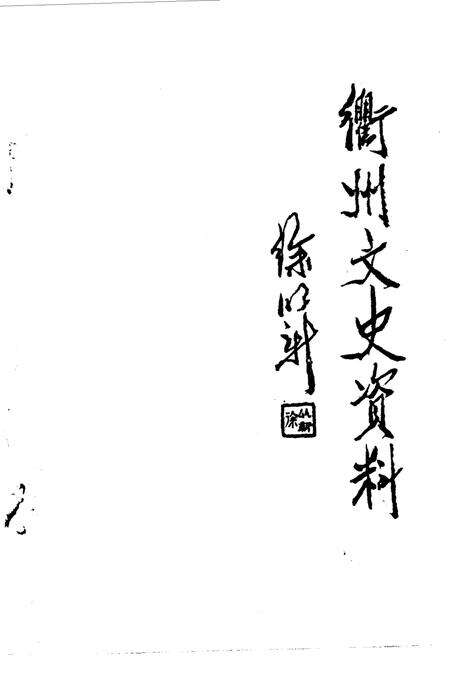 衢州文史資料
徐以新
徐以新